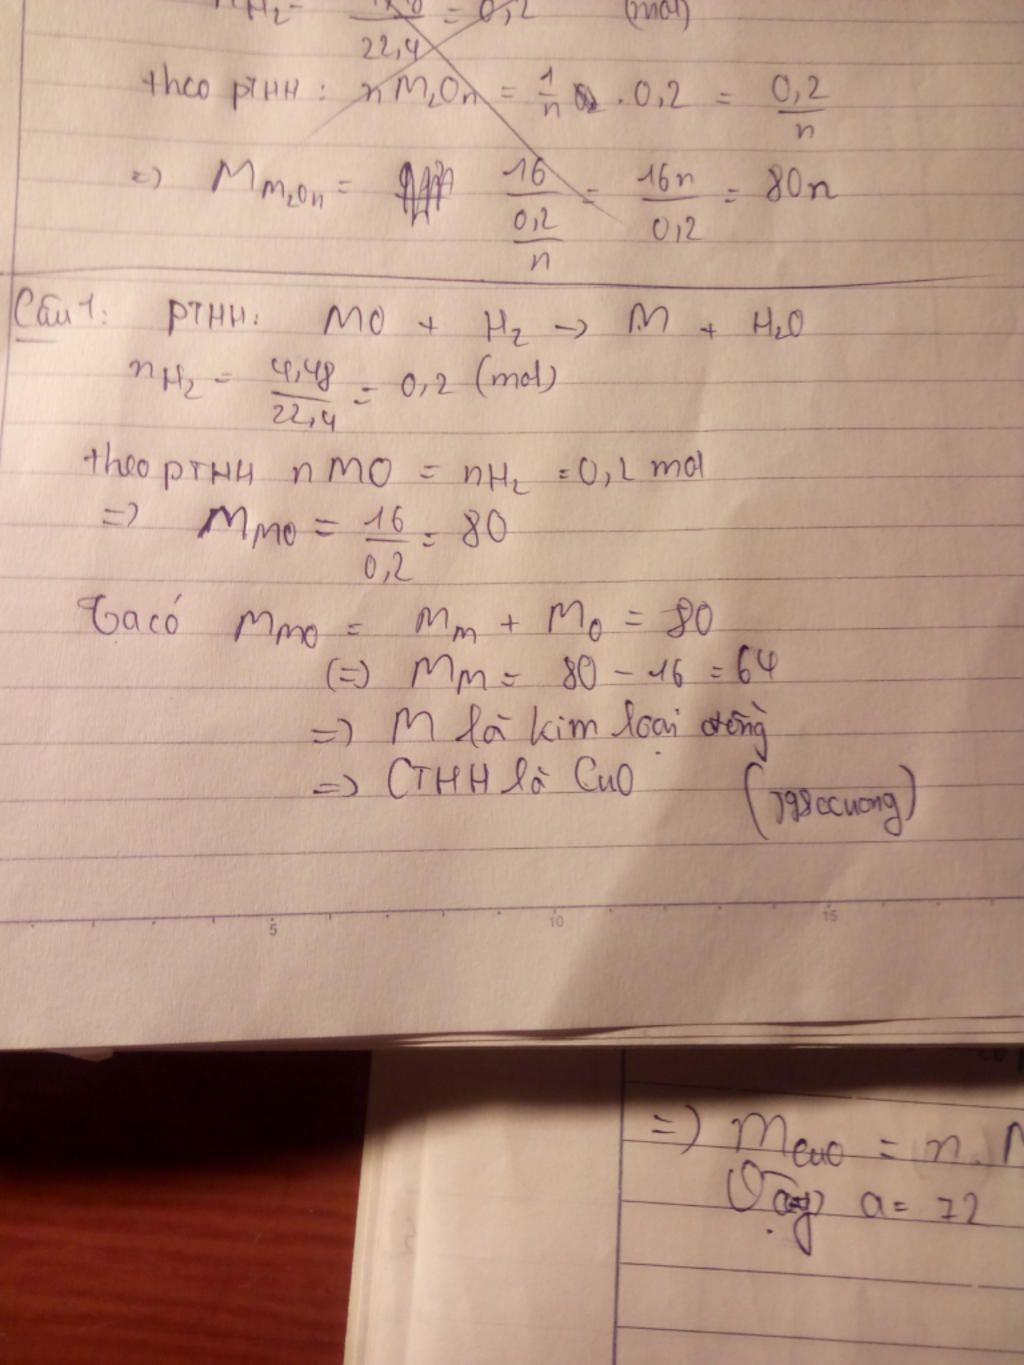 nH₂ = = 0,2 (mol)
22,4
theo PTHH : nM₂On = 1/n . 0,2 = 0,2/n
=> M M₂On = 16/(0,2/n) = 16n/0,2 = 80n
Câu 1: PTHH: MO + H₂ → M + H₂O
nH₂ = 4,48/22,4 = 0,2 (mol)
theo PTHH nMO = nH₂ = 0,2 mol
=> M MO = 16/0,2 = 80
Ta có M MO = M M + M O = 80
(=) M M = 80 - 16 = 64
=> M là kim loại đồng
=> CTHH là CuO
5 10 15
=> mCuO = n.M
Vậy a = 72